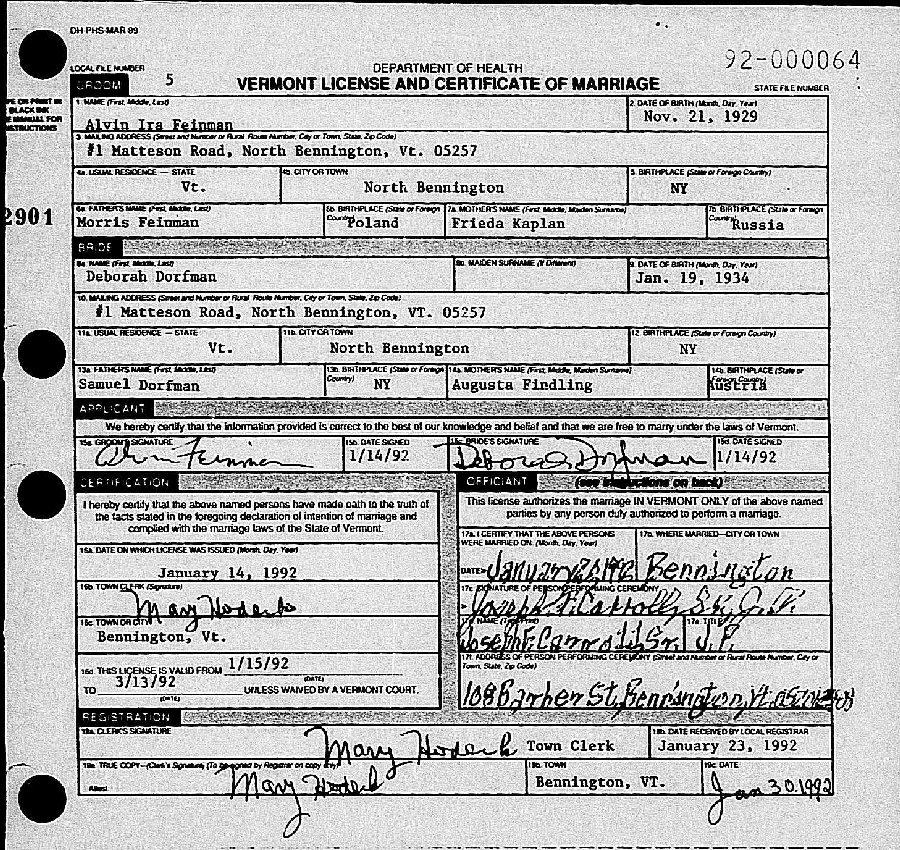 DH PHS-MAR 89
92-000064
LOCAL FILE NUMBER
DEPARTMENT OF HEALTH
GROOM 5 VERMONT LICENSE AND CERTIFICATE OF MARRIAGE STATE FILE NUMBER
BLACK INK
MANUAL FOR
2901
1. NAME (First, Middle, Last) 2. DATE OF BIRTH (Month, Day, Year)
Alvin Ira Feinman Nov. 21, 1929
3. MAILING ADDRESS (Street and Number or Rural Route Number, City or Town, State, Zip Code)
#1 Matteson Road, North Bennington, Vt. 05257
4a. USUAL RESIDENCE — STATE 4b. CITY OR TOWN 5. BIRTHPLACE (State or Foreign Country)
Vt. North Bennington NY
6a. FATHER'S NAME (First, Middle, Last) 6b. BIRTHPLACE (State or Foreign Country) 7a. MOTHER'S NAME (First, Middle, Maiden Surname) 7b. BIRTHPLACE (State or Foreign Country)
Morris Feinman Poland Frieda Kaplan Russia
BRIDE
8a. NAME (First, Middle, Last) 8b. MAIDEN SURNAME (If Different) 9. DATE OF BIRTH (Month, Day, Year)
Deborah Dorfman Jan. 19, 1934
10. MAILING ADDRESS (Street and Number or Rural Route Number, City or Town, State, Zip Code)
#1 Matteson Road, North Bennington, VT. 05257
11a. USUAL RESIDENCE — STATE 11b. CITY OR TOWN 12. BIRTHPLACE (State or Foreign Country)
Vt. North Bennington NY
13a. FATHER'S NAME (First, Middle, Last) 13b. BIRTHPLACE (State or Foreign Country) 14a. MOTHER'S NAME (First, Middle, Maiden Surname) 14b. BIRTHPLACE (State or Foreign Country)
Samuel Dorfman NY Augusta Findling Austria
APPLICANT
We hereby certify that the information provided is correct to the best of our knowledge and belief and that we are free to marry under the laws of Vermont.
15a. GROOM'S SIGNATURE 15b. DATE SIGNED 15c. BRIDE'S SIGNATURE 15d. DATE SIGNED
Alvin Feinman 1/14/92 Deborah Dorfman 1/14/92
CERTIFICATION
I hereby certify that the above named persons have made oath to the truth of
the facts stated in the foregoing declaration of intention of marriage and
complied with the marriage laws of the State of Vermont.
16a. DATE ON WHICH LICENSE WAS ISSUED (Month, Day, Year)
January 14, 1992
16b. TOWN CLERK (Signature)
Mary Hodeck
16c. TOWN OR CITY
Bennington, Vt.
16d. THIS LICENSE IS VALID FROM 1/15/92
(DATE)
TO 3/13/92 UNLESS WAIVED BY A VERMONT COURT.
(DATE)
OFFICIANT (see instructions on back)
This license authorizes the marriage IN VERMONT ONLY of the above named
parties by any person duly authorized to perform a marriage.
17a. I CERTIFY THAT THE ABOVE PERSONS WERE MARRIED ON: (Month, Day, Year) 17b. WHERE MARRIED—CITY OR TOWN
DATE January 1992 Bennington
17c. SIGNATURE OF PERSON PERFORMING CEREMONY
Joseph F. Carroll, Sr., J.P.
17d. NAME (Type/Print) 17e. TITLE
Joseph F. Carroll Sr. J.P.
17f. ADDRESS OF PERSON PERFORMING CEREMONY (Street and Number or Rural Route Number, City or Town, State, Zip Code)
108 Barber St, Bennington, Vt.
REGISTRATION
18a. CLERK'S SIGNATURE 18b. DATE RECEIVED BY LOCAL REGISTRAR
Mary Hodeck Town Clerk January 23, 1992
19a. TRUE COPY—(Clerk's Signature) (To be signed by Registrar on copy only) 19b. TOWN 19c. DATE
Attest: Mary Hodeck Bennington, VT. Jan 30, 1992